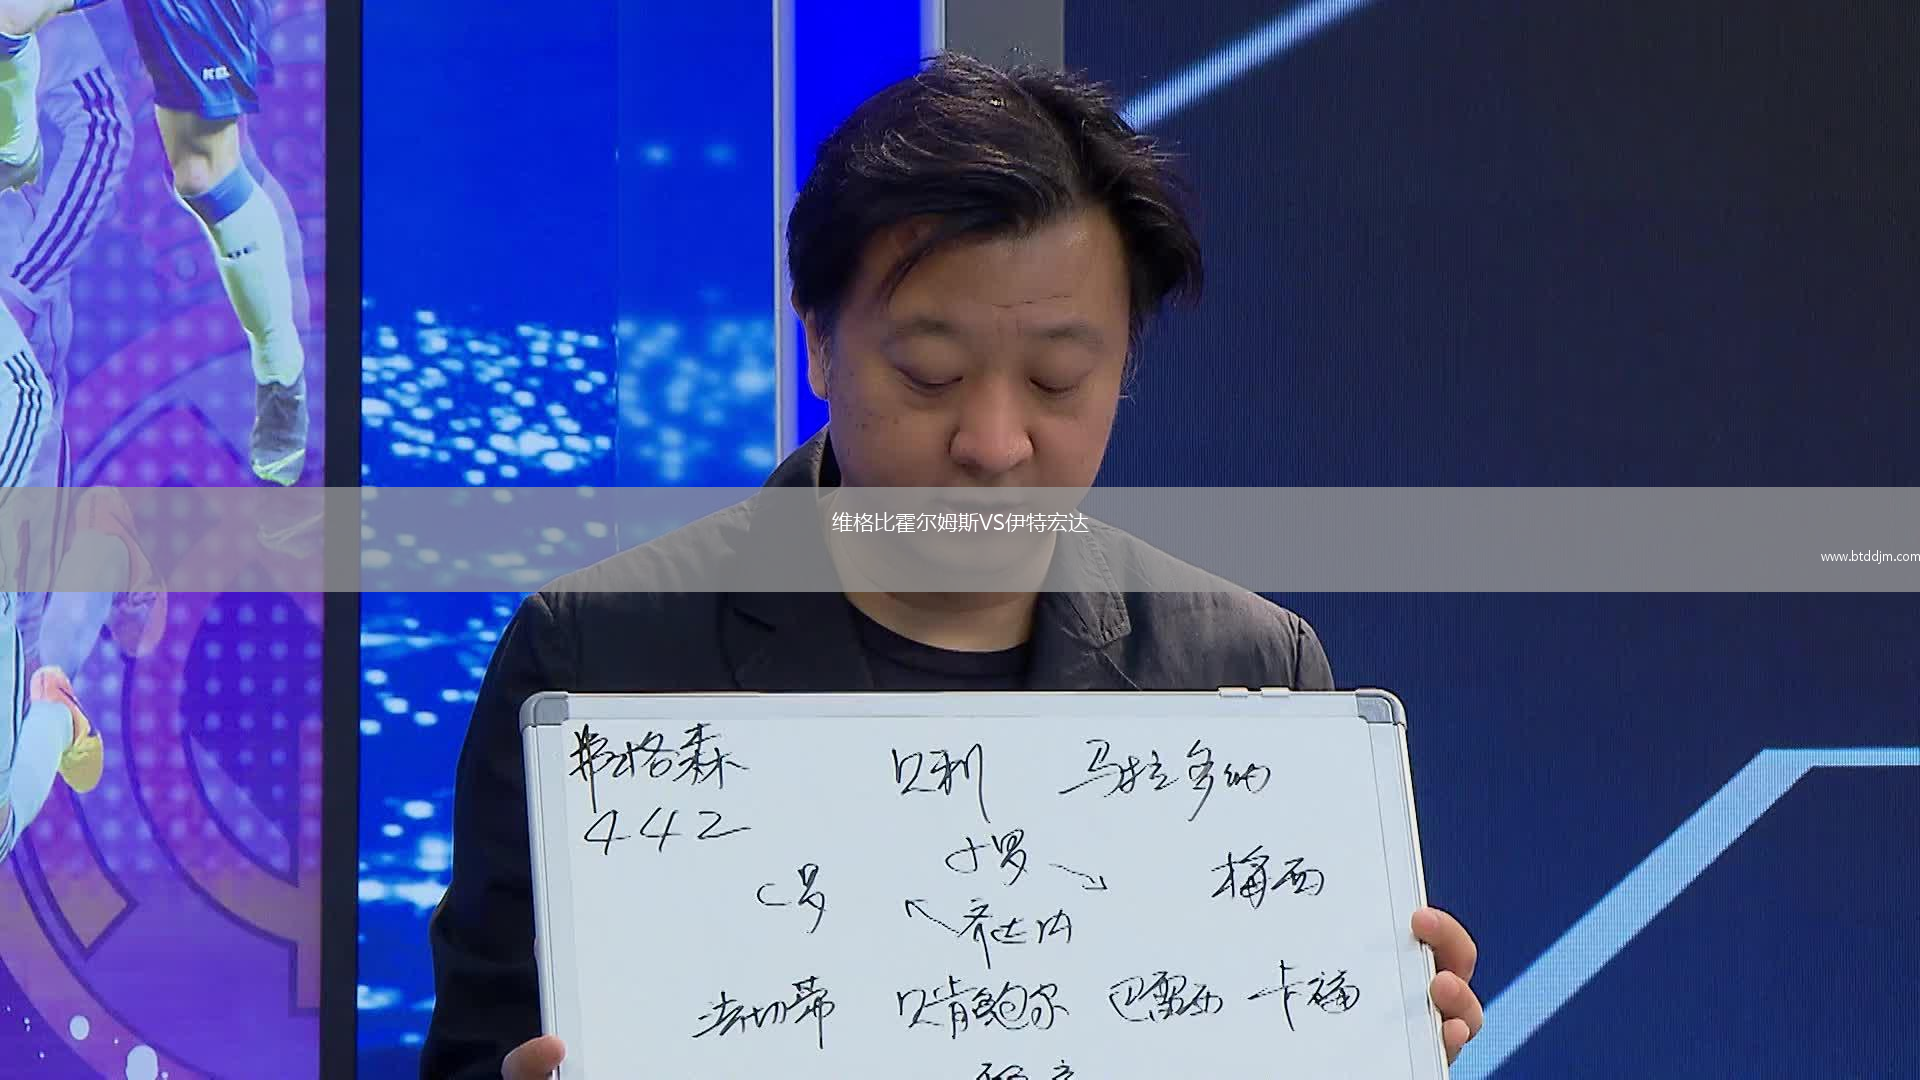 KEL
维格比霍尔姆斯VS伊特宏达
www.btddjm.com
弗格森 贝利 马拉多纳
442
小罗
C罗 梅西
齐达内
法切蒂 贝肯鲍尔 巴雷西 卡福